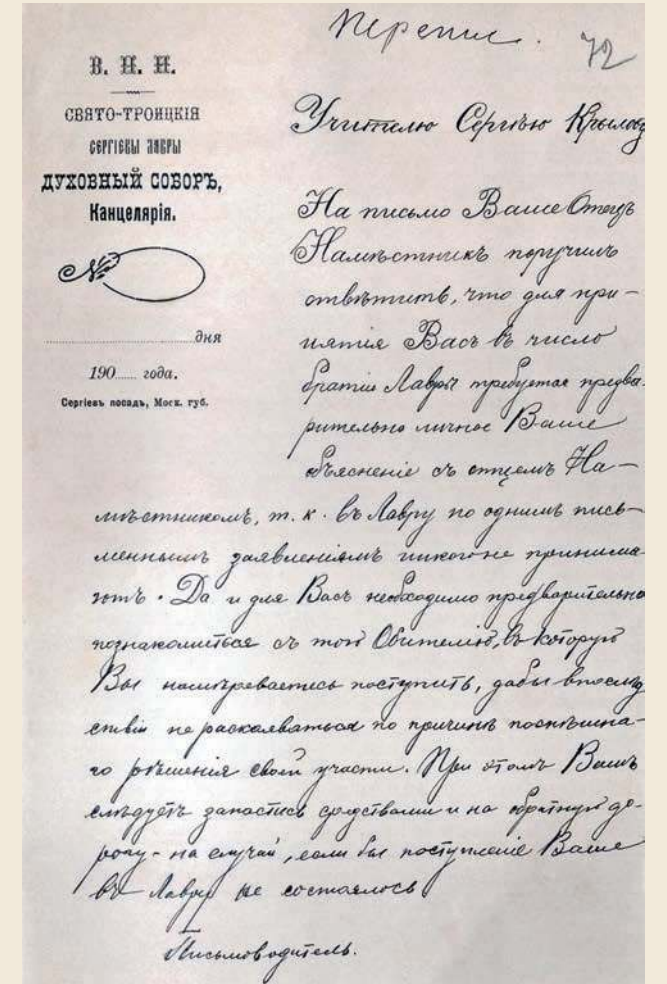 Перепис.
72
В. П. И.
СВЯТО-ТРОИЦКІЯ
СЕРГІЕВЫ ЛАВРЫ
ДУХОВНЫЙ СОБОРЪ,
Канцелярія.
№
дня
190 года.
Сергіевъ посадъ, Моск. губ.
Учителю Сергѣю Крылову
На письмо Ваше Отецъ
Намѣстникъ поручилъ
отвѣтить, что для при-
нятія Васъ въ число
братіи Лавры требуется предва-
рительно личное Ваше
объясненіе съ отцемъ На-
мѣстникомъ, т. к. въ Лавру по однимъ пись-
меннымъ заявленіямъ никого не принима-
ютъ. Да и для Васъ необходимо предварительно
познакомиться съ тою Обителію, въ которую
Вы намѣреваетесь поступить, дабы впослѣд
ствіи не раскаяваться по причинѣ поспѣшна-
го рѣшенія своей участи. При этомъ Вамъ
слѣдуетъ запастись средствами и на обратную до-
рогу - на случай, если бы поступленіе Ваше
въ Лавру не состоялось
Письмоводитель.